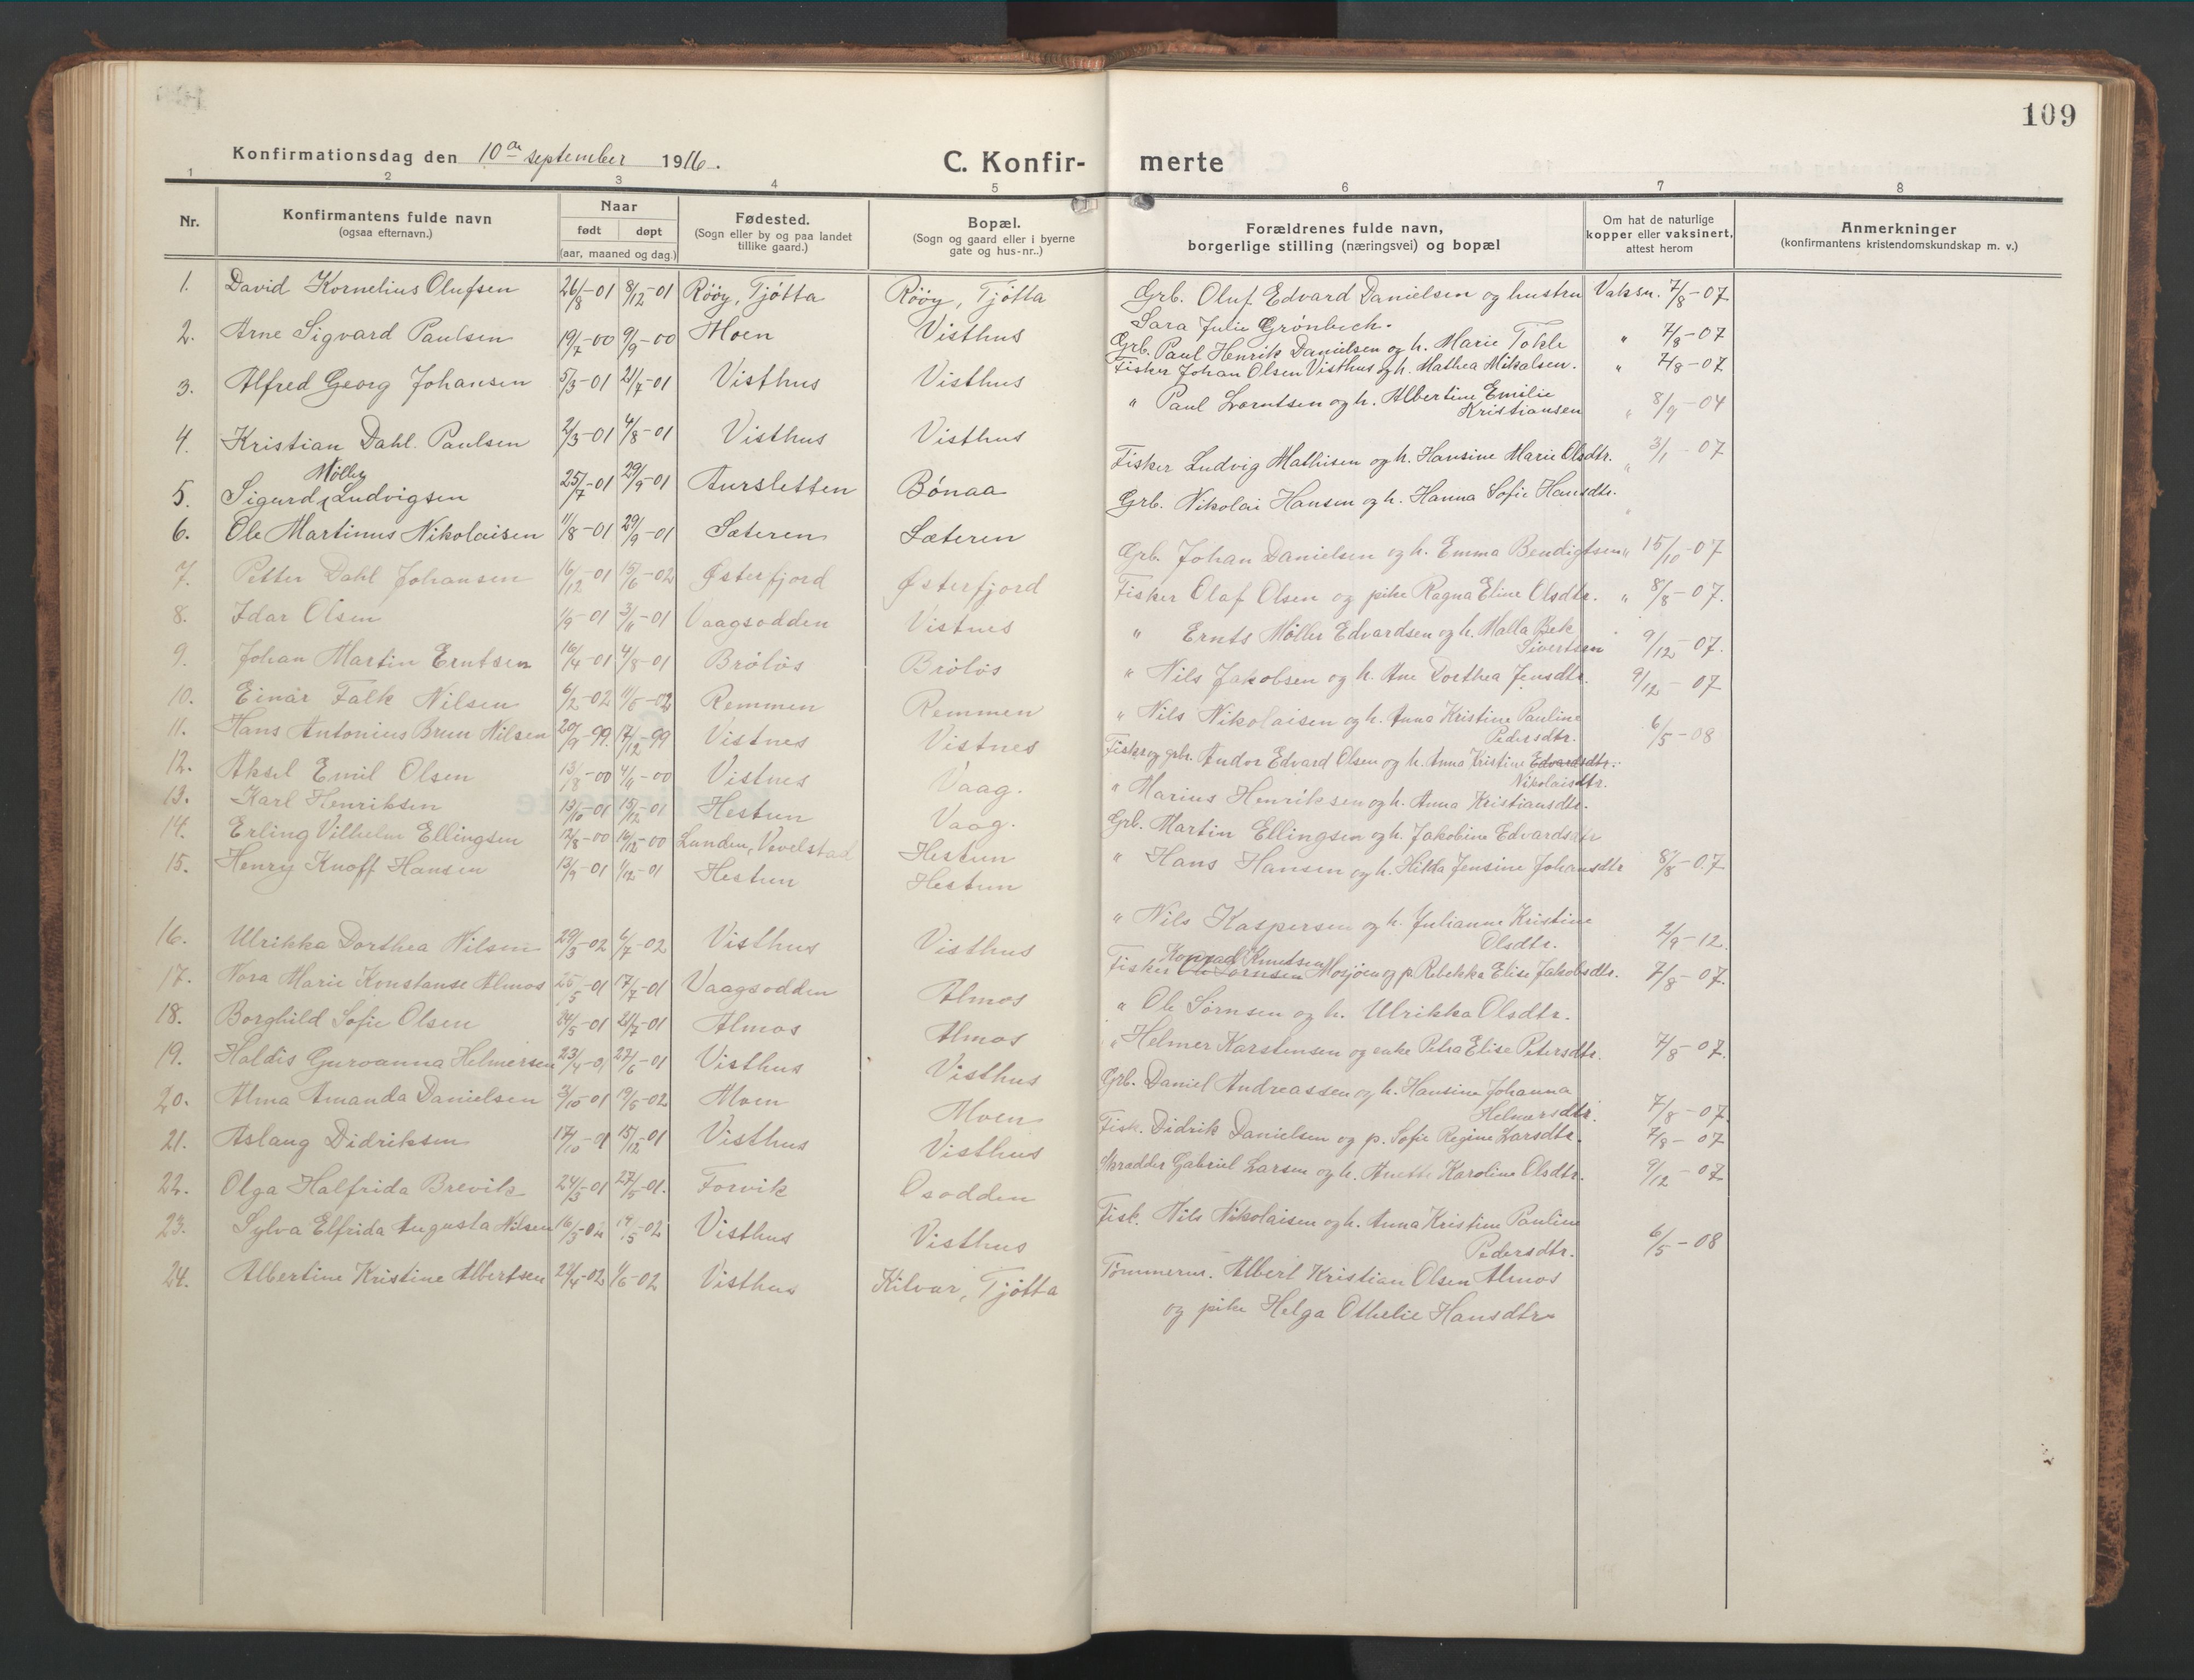 109
Konfirmationsdag den 10de september 1916.
C. Konfir- merte
1 2 3 4 5 6 7 8
Nr.
Konfirmantens fulde navn
(ogsaa efternavn.)
Naar
født døpt
(aar, maaned og dag.)
Fødested.
(Sogn eller by og paa landet
tillike gaard.)
Bopæl.
(Sogn og gaard eller i byerne
gate og hus-nr..)
Forældrenes fulde navn,
borgerlige stilling (næringsvei) og bopæl
Om hat de naturlige
kopper eller vaksinert,
attest herom
Anmerkninger
(konfirmantens kristendomskundskap m. v.)
1. David Kornelius Olufsen 26/8-01 8/12-01 Røøy, Tjøtta Røøy, Tjøtta Grb. Oluf Edvard Danielsen og hustru Vaksn. 7/8-07
Sara Julie Grønbech.
2. Arne Sigvard Paulsen 19/7-00 9/9-00 Moen Visthus Grb. Paul Henrik Danielsen og h. Marie Tokle " 7/8-07
3. Alfred Georg Johansen 5/3-01 21/7-01 Visthus Visthus Fisker Johan Olsen Visthus og h. Mathea Mikalsen. " 7/8-07
4. Kristian Dahl Paulsen 2/3-01 4/8-01 Visthus Visthus " Paul Lorntsen og h. Albertine Emilie " 8/9-04
Kristiansen
Møller
5. Sigurd Ludvigsen 25/7-01 29/9-01 Aursletten Bønaa Fisker Ludvig Mathisen og h. Hansine Marie Olsdtr. " 3/1-07
6. Ole Martinus Nikolaisen 11/8-01 29/9-01 Sæteren Sæteren Grb. Nikolai Hansen og h. Hanna Sofie Hansdtr. "
7. Petter Dahl Johansen 16/12-01 15/6-02 Østerfjord Østerfjord Grb. Johan Danielsen og h. Emma Bendigtsen " 15/10-07
8. Idar Olsen 1/9-01 3/11-01 Vaagsodden Vistnes Fisker Olaf Olsen og pike Ragna Eline Olsdtr. " 8/8-07.
9. Johan Martin Erntsen 16/4-01 4/8-01 Brøløs Brøløs " Ernts Møller Edvardsen og h. Malla Bek 9/12-07.
Sivertsen
10. Einar Falk Nilsen 6/2-02 11/5-02 Remmen Remmen " Nils Jakobsen og h. Ane Dorthea Jensdtr. 9/12-07
11. Hans Antonius Brun Nilsen 20/9-99. 17/12-99 Vistnes Vistnes " Nils Nikolaisen og h. Anna Kristine Pauline 6/5-08
Pedersdtr.
12. Aksel Emil Olsen 13/8-00 4/11-00 Vistnes Vaag. Fisker og grbr. Andor Edvard Olsen og h. Anna Kristine Edvardsdtr.
Nikolaisdtr.
13. Karl Henriksen 13/10-01 15/12-01 Hestun Vaag. " Marius Henriksen og h. Anna Kristiansdtr.
14. Erling Vilhelm Ellingsen 12/8-00 16/12-00 Lunden, Vevelstad Hestun Grb. Martin Ellingsen og h. Jakobine Edvardsdtr
15. Henry Knoff Hansen 13/9-01 1/12-01 Hestun Hestun " Hans Hansen og h. Hikka Jensine Johansdtr 8/8-07
16. Ulrikka Dorthea Nilsen 29/3-02 6/7-02 Visthus Visthus " Nils Kaspersen og h. Julianne Kristine 2/9-12.
Olsdtr.
Konrad Knudsen
17. Nora Marie Konstanse Almos 25/5-01 17/7-01 Vaagsodden Almos Fisker Ole Sørnsen Mosjøen og p. Rebekka Elise Jakobsdtr. 7/8-07.
18. Borghild Sofie Olsen 24/5-01 21/7-01 Almos Almos " Ole Sørnsen og h. Ulrikka Olsdtr.
19. Haldis Guroanna Helmersen 23/4-01 27/6-01 Visthus Visthus " Helmer Karstensen og enke Petra Elise Petersdtr. 7/8-07.
20. Alma Amanda Danielsen 3/10-01 19/5-02 Moen Moen Grb. Daniel Andreassen og h. Hansine Johanna 7/8-07.
Helmersdtr.
21. Aslaug Didriksen 17/10-01 15/12-01 Visthus Visthus Fisk. Didrik Danielsen og p. Sofie Regine Larsdtr. 7/8-07
22. Olga Halfrida Brevik 24/3-01 27/5-01. Forvik Osodden Skrædder Gabriel Larsen og h. Anette Karoline Olsdtr. 9/12-07
23. Sylva Elfrida Augusta Nilsen 16/3-02 19/5-02 Visthus Visthus Fisk. Nils Nikolaisen og h. Anna Kristine Pauline 6/5-08
Pedersdtr.
24. Albertine Kristine Albertsen 22/4-02 1/6-02 Visthus Kilvær, Tjøtta Tømmerm. Albert Kristian Olsen Almos
og pike Helga Othelie Hansdtr